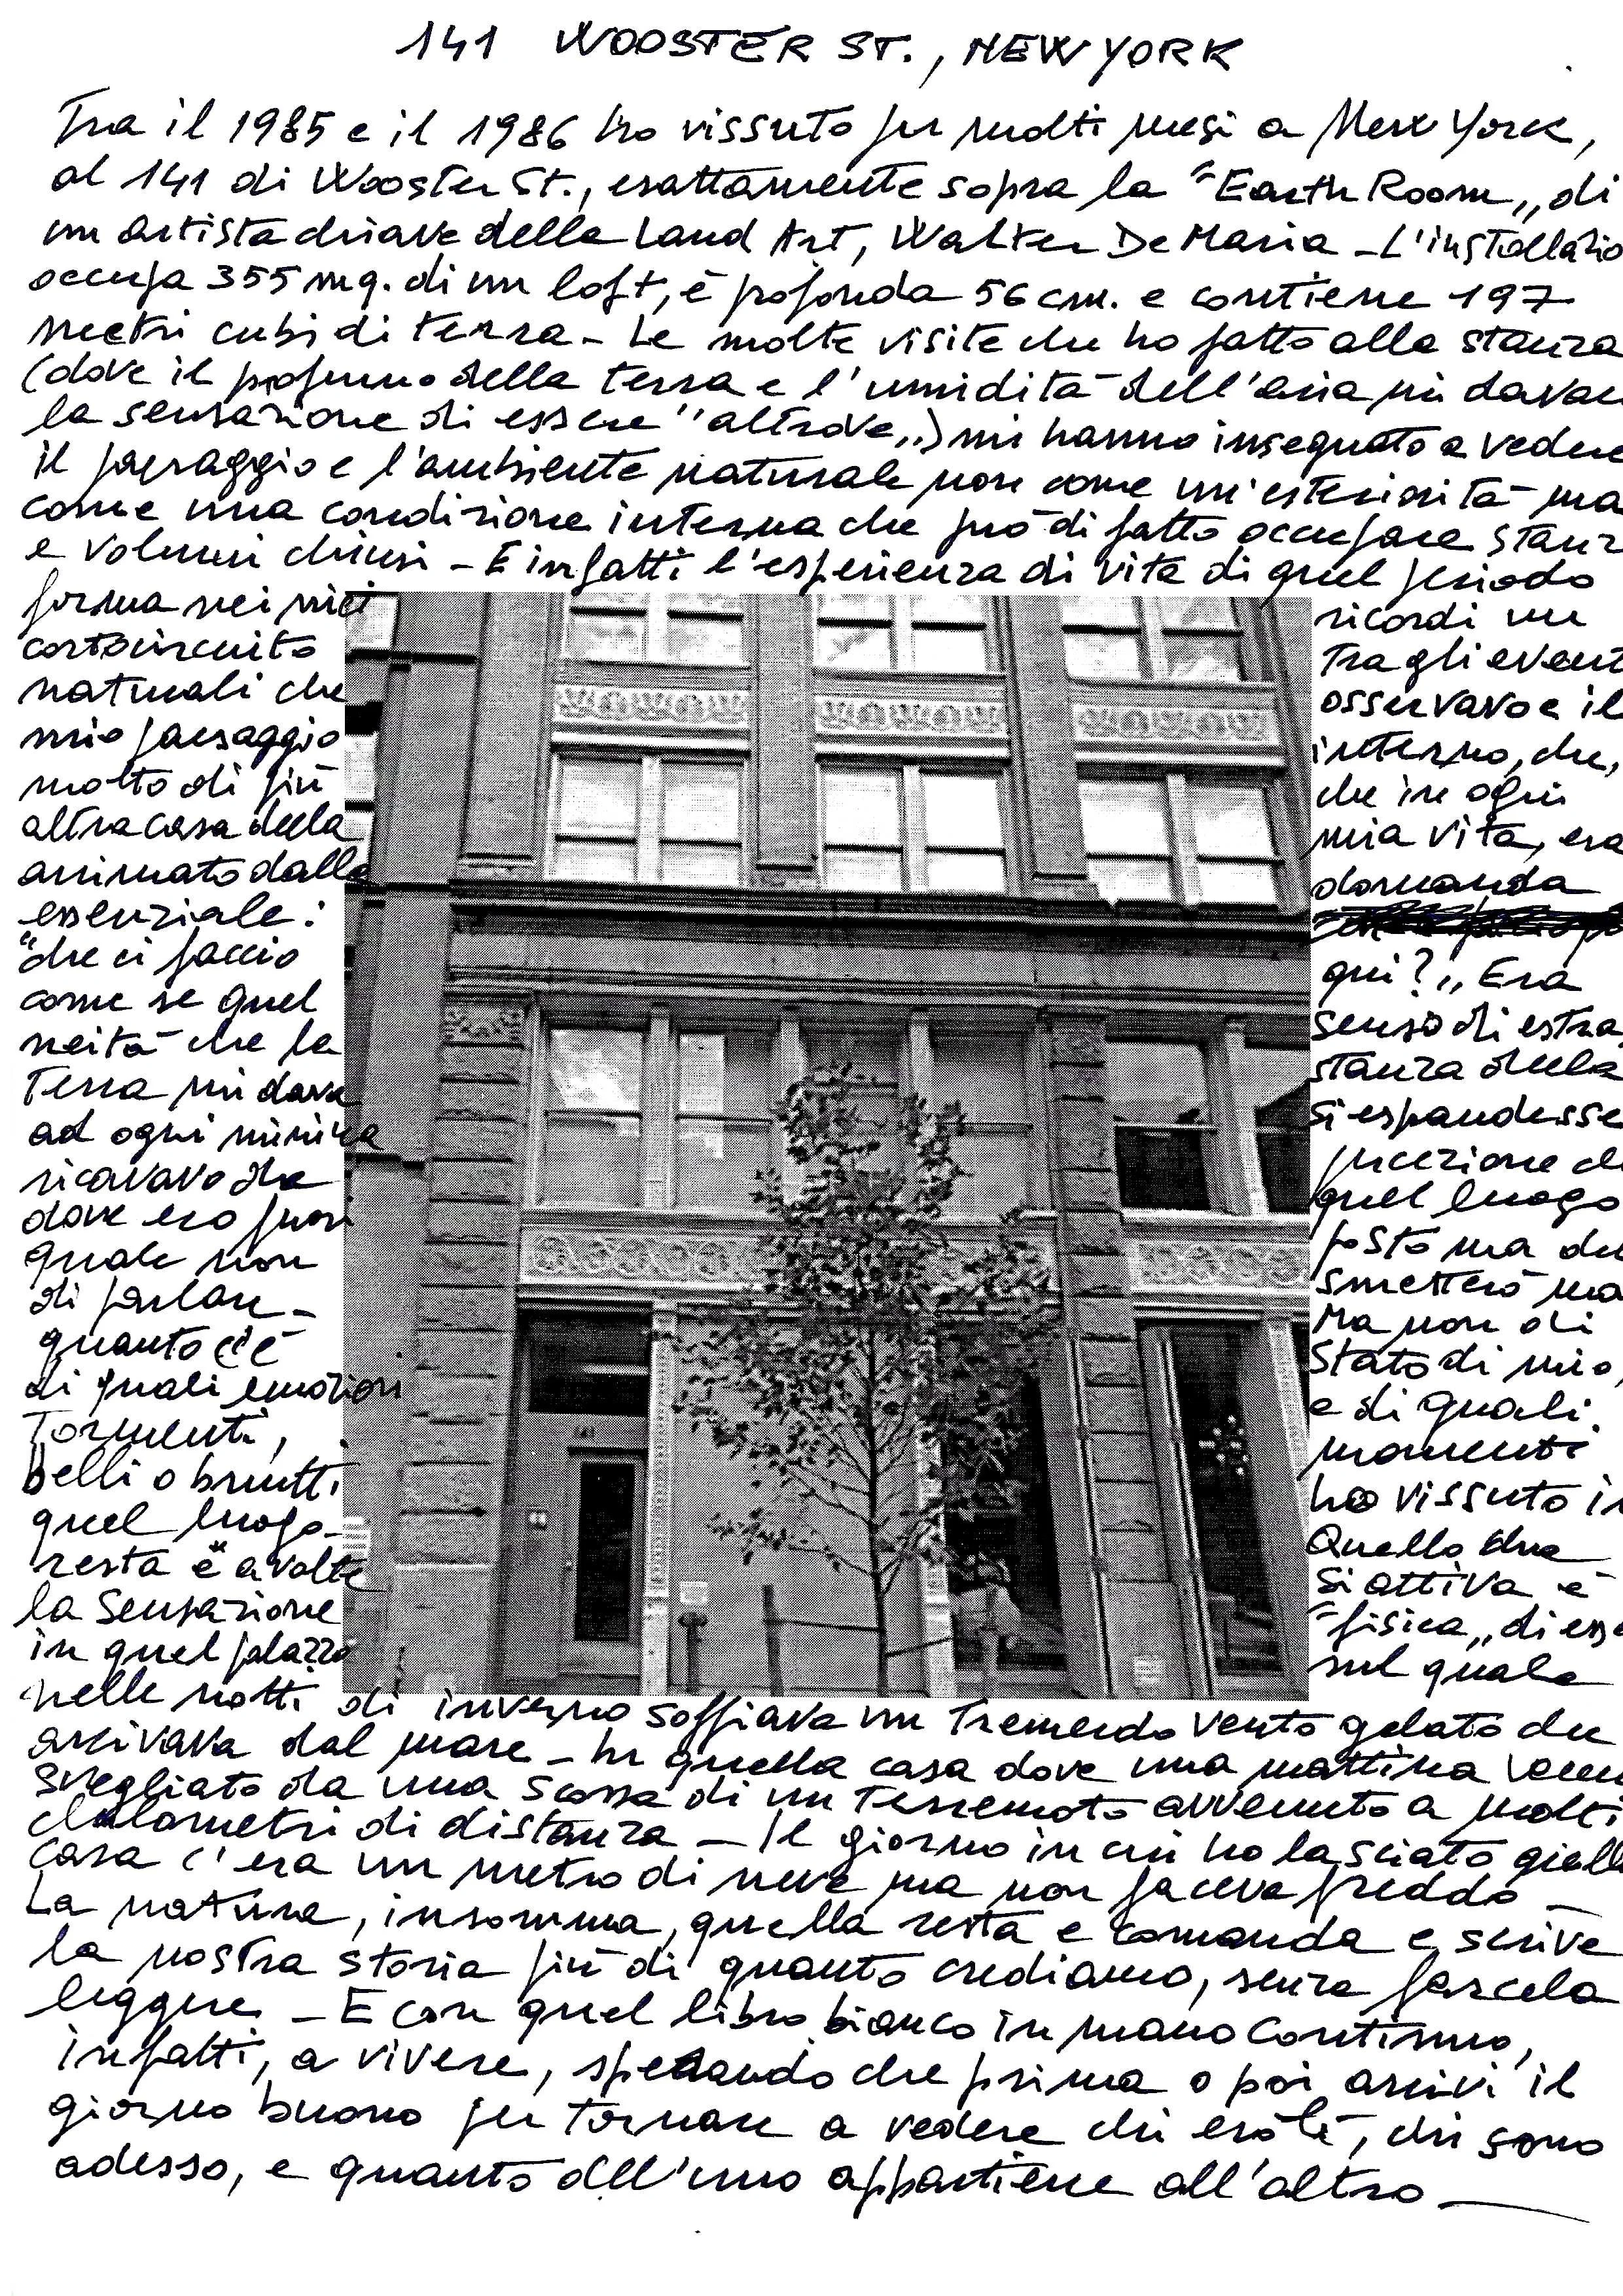 141 WOOSTER ST., NEW YORK
Tra il 1985 e il 1986 ho vissuto per molti mesi a New York,
al 141 di Wooster St., esattamente sopra la "Earth Room„ di
un artista chiave della Land Art, Walter De Maria - L'installazio
occupa 355 mq. di un loft, è profonda 56 cm. e contiene 197
metri cubi di terra - Le molte visite che ho fatto alla stanza
(dove il profumo della terra e l'umidità dell'aria mi davan
la sensazione di essere "altrove„) mi hanno insegnato a vedere
il paesaggio e l'ambiente naturale non come un'esteriorità ma
come una condizione interna che può di fatto occupare stanz
e volumi chiusi - E infatti l'esperienza di vita di quel periodo
forma nei miei ricordi un
cortocircuito tra gli event
naturali che osservavo e il
mio paesaggio interno, che,
molto di più che in ogni
altra casa della mia vita, era
animato dalla domanda
essenziale:
"che ci faccio qui?„ Era
come se quel senso di estra
neità che la stanza della
Terra mi dava si espandesse
ad ogni minima percezione che
ricavavo da quel luogo
dove ero fuori posto ma del
quale non smetterò mai
di parlare - Ma non di
quanto c'è stato di mio,
di quali emozioni e di quali
tormenti, momenti
belli o brutti ho vissuto in
quel luogo - Quello che
resta e a volte si attiva è
la sensazione "fisica„ di esse
in quel palazzo sul quale
nelle notti di inverno soffiava un tremendo vento gelato che
arrivava dal mare - In quella casa dove una mattina venn
svegliato da una scossa di un terremoto avvenuto a molti
chilometri di distanza - Il giorno in cui ho lasciato quell
casa c'era un metro di neve ma non faceva freddo -
La natura, insomma, quella resta e comanda e scrive
la nostra storia più di quanto crediamo, senza farcela
leggere - E con quel libro bianco in mano continuo,
infatti, a vivere, sperando che prima o poi arrivi il
giorno buono per tornare a vedere chi ero lì, chi sono
adesso, e quanto dell'uno appartiene all'altro -
141